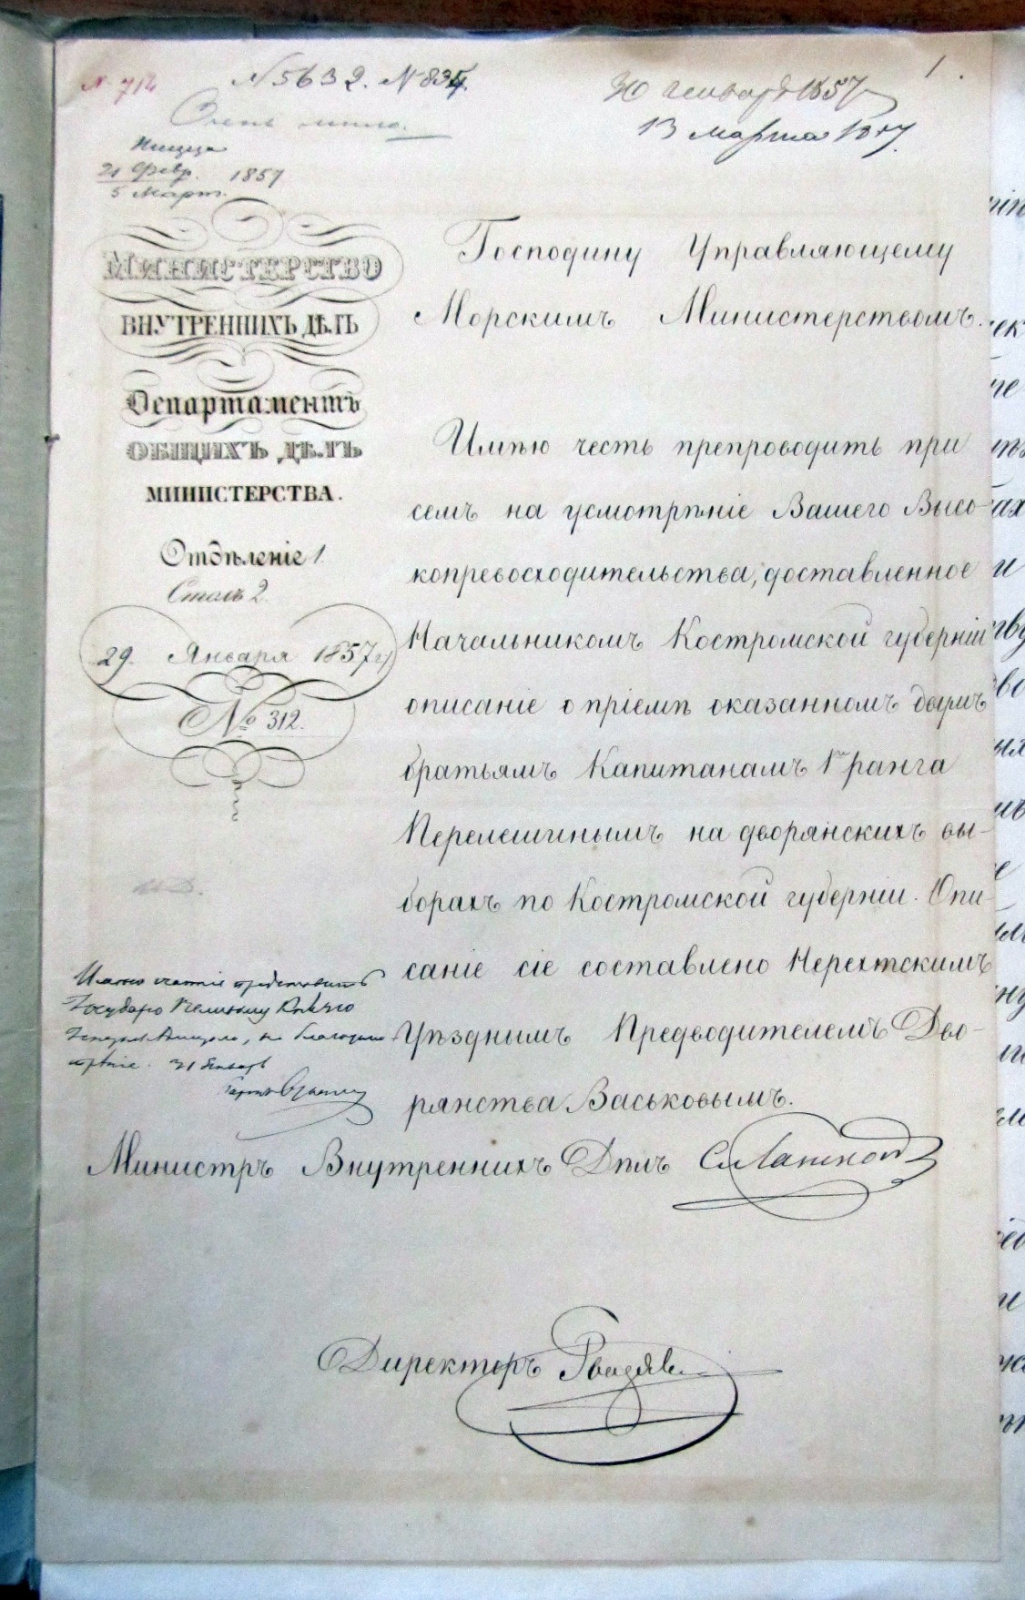 № 712 № 5632. № 834.
30 Января 1857
13 Марта 1857.
1.
Очень мило.
Ницца
21 Февр. 1857
5 Март.
МИНИСТЕРСТВО
ВНУТРЕННИХЪ ДѢЛЪ
Департаментъ
ОБЩИХЪ ДѢЛЪ
МИНИСТЕРСТВА.
Отдѣленіе 1.
Столъ 2.
29. Января 1857 г.
№ 312.
Господину Управляющему
Морскимъ Министерствомъ.
Имѣю честь препроводить при
семъ на усмотрѣніе Вашего Высо-
копревосходительства, доставленное
Начальникомъ Костромской губерніи
описаніе о пріемѣ оказанномъ двумъ
братьямъ Капитанамъ 1го ранга
Перелешинымъ на дворянскихъ вы-
борахъ по Костромской губерніи. Опи-
саніе сіе составлено Нерехтскимъ
Уѣзднымъ Предводителемъ Дво-
рянства Васьковымъ.
Имѣю счастіе представить
Государю Великому Князю
Генералъ Адмиралу, на благоусмо-
трѣніе. 31 Январь
Министръ Внутреннихъ Дѣлъ С. Ланской
Директоръ Гвоздев